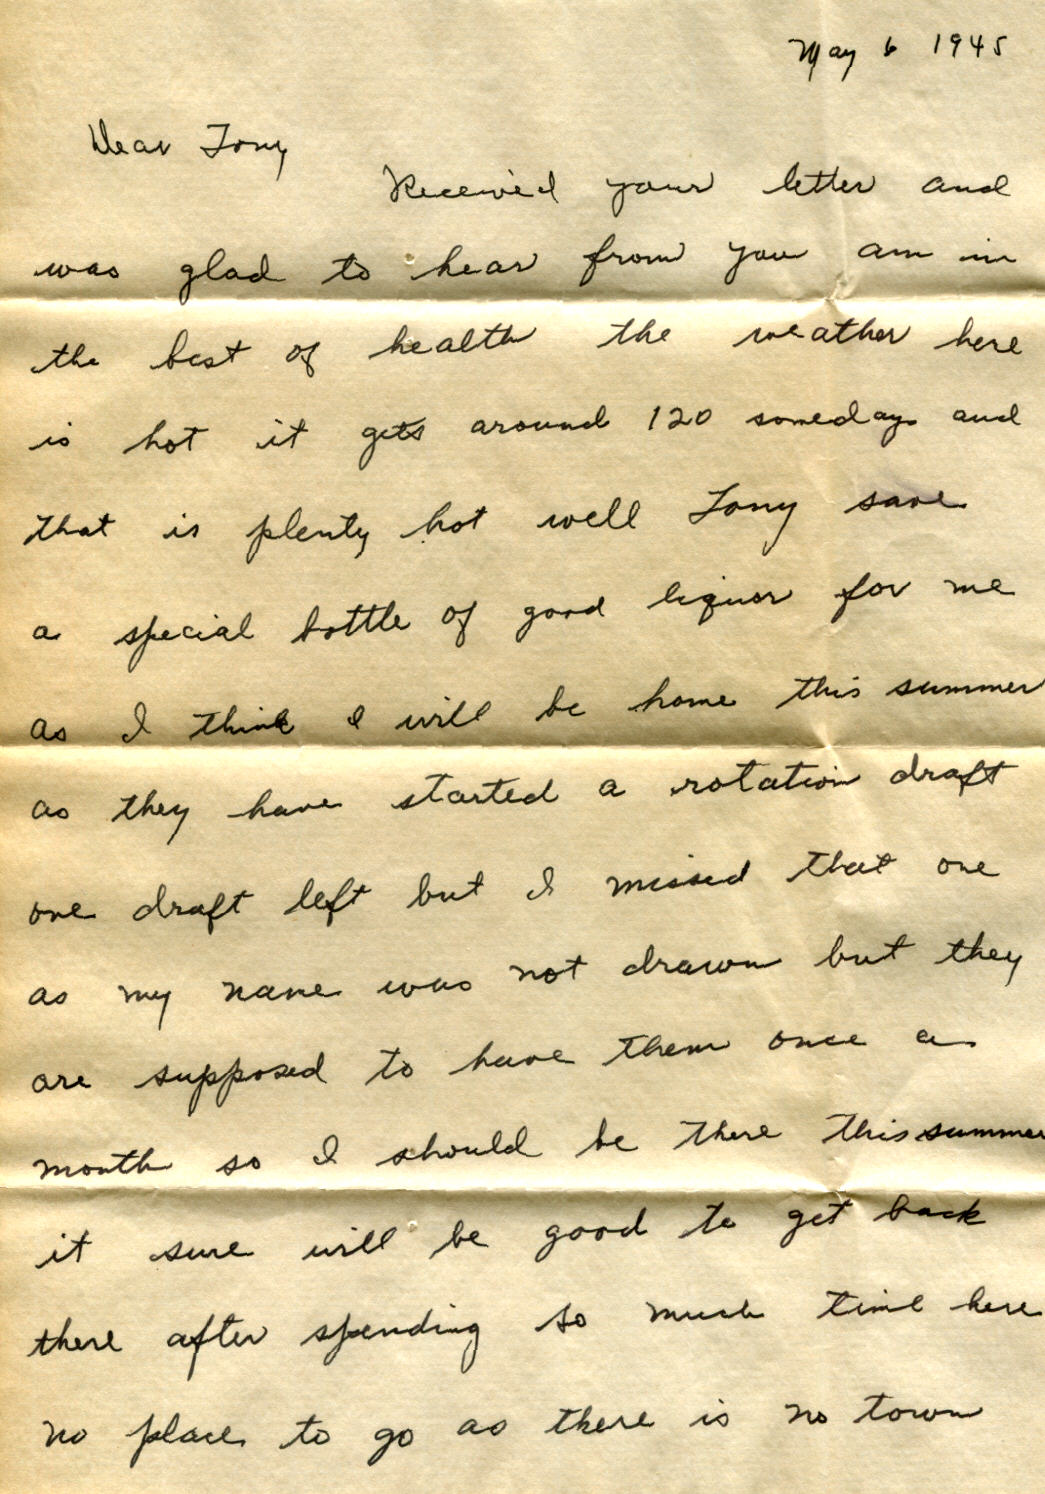 May 6 1945
Dear Tony
Received your letter and
was glad to hear from you am in
the best of health the weather here
is hot it gets around 120 somedays and
that is plenty hot well Tony save
a special bottle of good liquor for me
as I think I will be home this summer
as they have started a rotation draft
one draft left but I missed that one
as my name was not drawn but they
are supposed to have them once a
month so I should be there this summer
it sure will be good to get back
there after spending so much time here
no place to go as there is no town